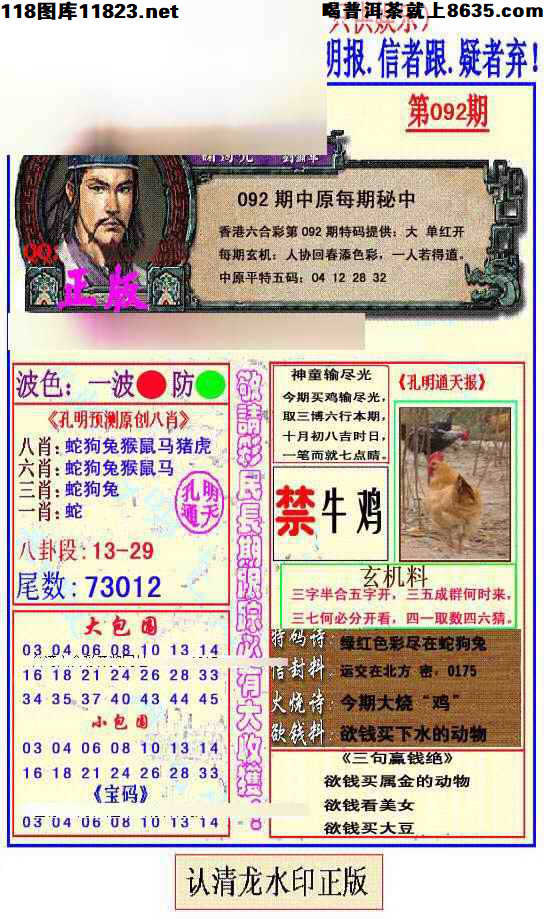 118图库11823.net
喝普洱茶就上8635.com
明报.信者跟.疑者弃!
第092期
092 期中原每期秘中
香港六合彩第 092 期特码提供：大 单红开
每期玄机：人协回春添色彩，一人若得道。
中原平特五码：04 12 28 32
正版
波色：一波 防
《孔明预测原创八肖》
八肖：蛇狗兔猴鼠马猪虎
六肖：蛇狗兔猴鼠马
三肖：蛇狗兔
一肖：蛇
孔明
通天
八卦段：13-29
尾数：73012
大包围
03 04 06 08 10 13 14
16 18 21 24 26 28 33
34 35 37 40 43 44 45
小包围
03 04 06 08 10 13 14
16 18 21 24 26 28 33
《宝码》
03 04 06 08 10 13 14
敬請彩民長期跟踪必有大收獲!
神童输尽光
今期买鸡输尽光，
取三博六行本期，
十月初八吉时日，
一笔而就七点睛。
《孔明通天报》
禁 牛鸡
玄机料
三字半合五字开，三五成群何时来，
三七何必分开看，四一取数四六猜。
特码诗：绿红色彩尽在蛇狗兔
信封料：运交在北方 密，0175
火烧诗：今期大烧“鸡”
欲钱料：欲钱买下水的动物
《三句赢钱绝》
欲钱买属金的动物
欲钱看美女
欲钱买大豆
认清龙水印正版